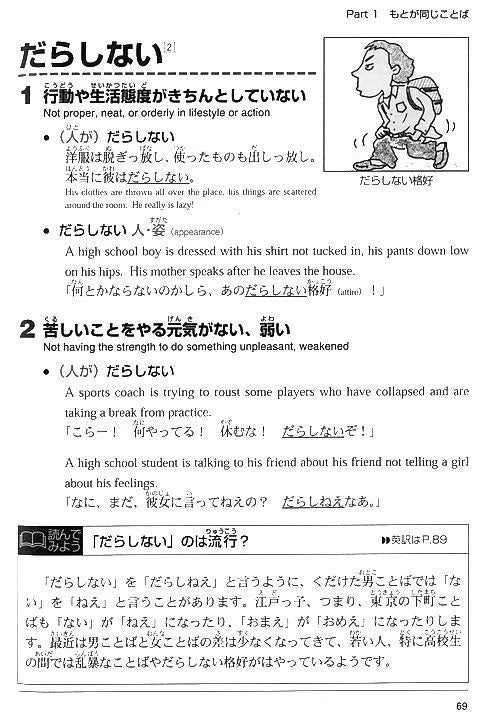 Part 1 もとが同じことば
だらしない[2]
1 行動や生活態度がきちんとしていない
Not proper, neat, or orderly in lifestyle or action
● (人が) だらしない
洋服は脱ぎっ放し、使ったものも出しっ放し。
本当に彼はだらしない。
His clothes are thrown all over the place, his things are scattered
around the room. He really is lazy!
だらしない格好
● だらしない 人・姿 (appearance)
A high school boy is dressed with his shirt not tucked in, his pants down low
on his hips. His mother speaks after he leaves the house.
「何とかならないのかしら、あのだらしない格好 (attire) !」
2 苦しいことをやる元気がない、弱い
Not having the strength to do something unpleasant, weakened
● (人が) だらしない
A sports coach is trying to roust some players who have collapsed and are
taking a break from practice.
「こらー! 何やってる! 休むな! だらしないぞ!」
A high school student is talking to his friend about his friend not telling a girl
about his feelings.
「なに、まだ、彼女に言ってねえの? だらしねえなあ。」
読んでみよう 「だらしない」のは流行? 英訳はP.89
「だらしない」を「だらしねえ」と言うように、くだけた男ことばでは「な
い」を「ねえ」と言うことがあります。江戸っ子、つまり、東京の下町こと
ばも「ない」が「ねえ」になったり、「おまえ」が「おめえ」になったりしま
す。最近は男ことばと女ことばの差は少なくなってきて、若い人、特に高校生
の間では乱暴なことばやだらしない格好がはやっているようです。
69